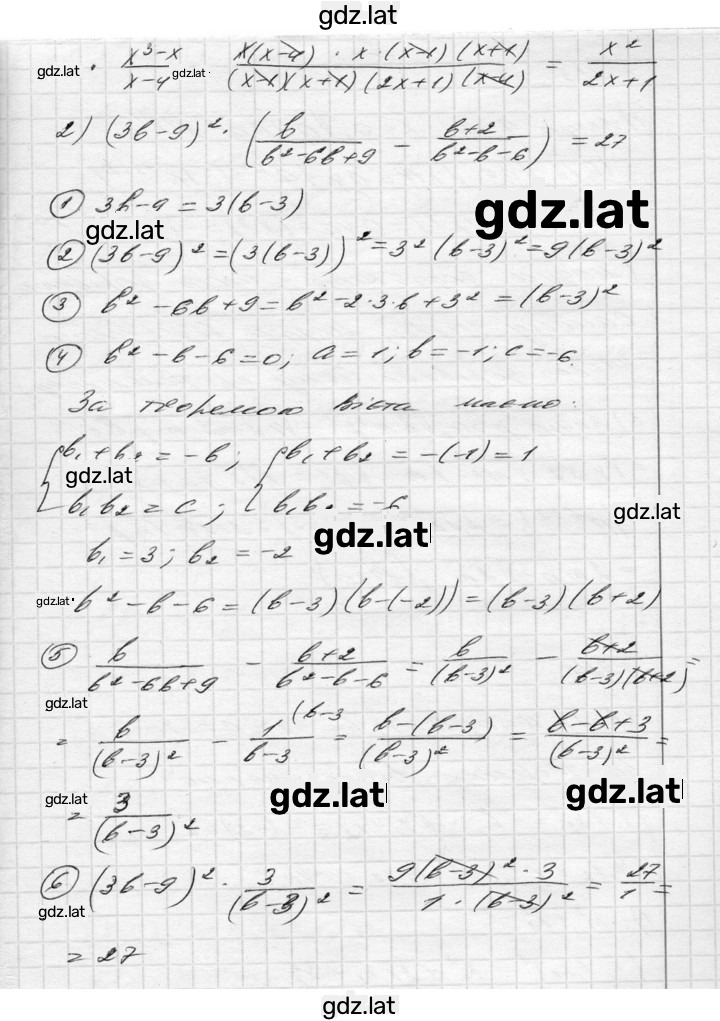 gdz.lat
gdz.lat · (x³-x)/(x-4) gdz.lat · (x(x-4) · x · (x-1)(x+1))/((x-1)(x+1)(2x+1)(x-4)) = x²/(2x+1)
2) (3b-9)² · (b/(b²-6b+9) - (b+2)/(b²-b-6)) = 27
① 3b-9 = 3(b-3) gdz.lat
gdz.lat
② (3b-9)² = (3(b-3))² = 3²(b-3)² = 9(b-3)²
③ b²-6b+9 = b²-2·3·b+3² = (b-3)²
④ b²-b-6=0; a=1; b=-1; c=-6.
За теоремою Вієта маємо:
{b₁+b₂ = -b; {b₁+b₂ = -(-1) = 1
gdz.lat
b₁b₂ = c; b₁b₂ = -6 gdz.lat
gdz.lat
b₁ = 3; b₂ = -2
gdz.lat · b²-b-6 = (b-3)(b-(-2)) = (b-3)(b+2)
⑤ b/(b²-6b+9) - (b+2)/(b²-b-6) = b/(b-3)² - (b+2)/((b-3)(b+2)) =
gdz.lat
= b/(b-3)² - 1/(b-3) (b-3 = (b-(b-3))/(b-3)² = (b-b+3)/(b-3)² =
gdz.lat gdz.lat gdz.lat
= 3/(b-3)²
⑥ (3b-9)² · 3/(b-3)² = (9(b-3)² · 3)/(1 · (b-3)²) = 27/1 =
gdz.lat
= 27
gdz.lat